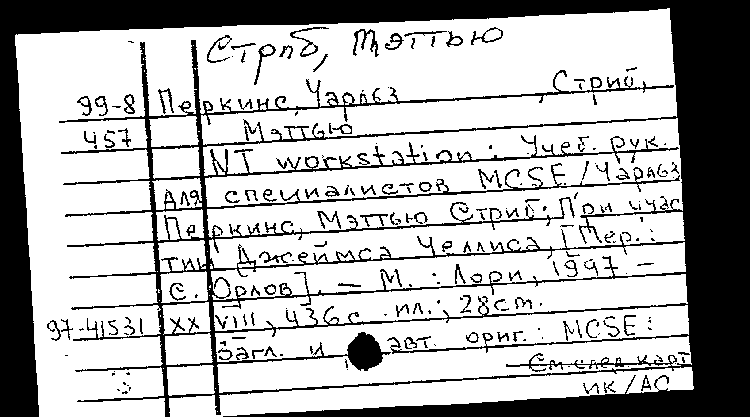 Стриб, Мэттью
99-8 Перкинс, Чарльз , Стриб,
457 Мэттью
NT workstation: Учеб. рук.
для специалистов MCSE/Чарльз
Перкинс, Мэттью Стриб; При учас
тии Джеймса Челлиса, [Пер.:
С. Орлов]. — М. : Лори, 1997 —
97-41531 XX VIII, 436с. ил.; 28cm.
Загл. и авт. ориг.: MCSE:
См. след. карт
ИК/АС